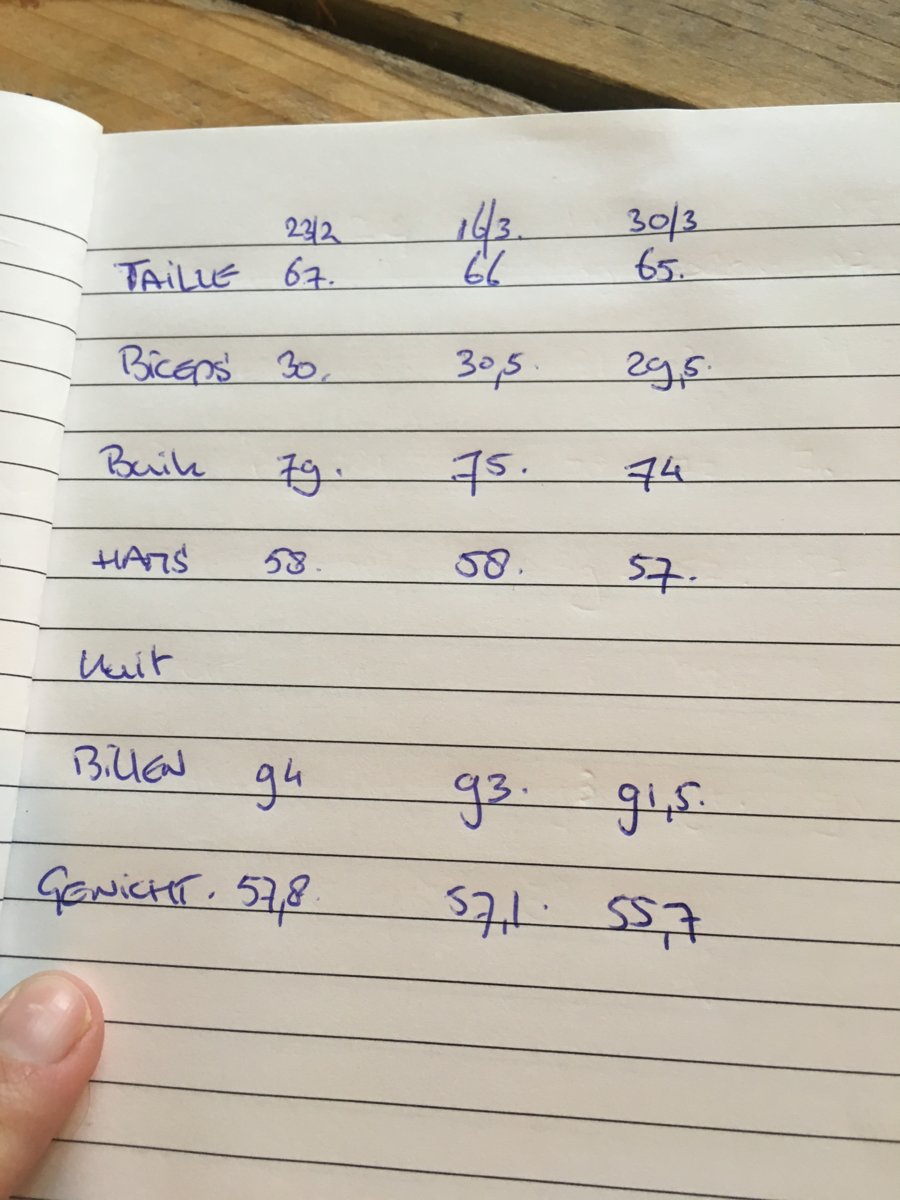 23/2 16/3. 30/3
TAILLE 67. 66 65.
Biceps 30. 30,5. 29,5.
Buik 79. 75. 74
HAMS 58. 58. 57.
Kuit
BILLEN 94 93. 91,5.
GEWICHT. 57,8. 57,1. 55,7